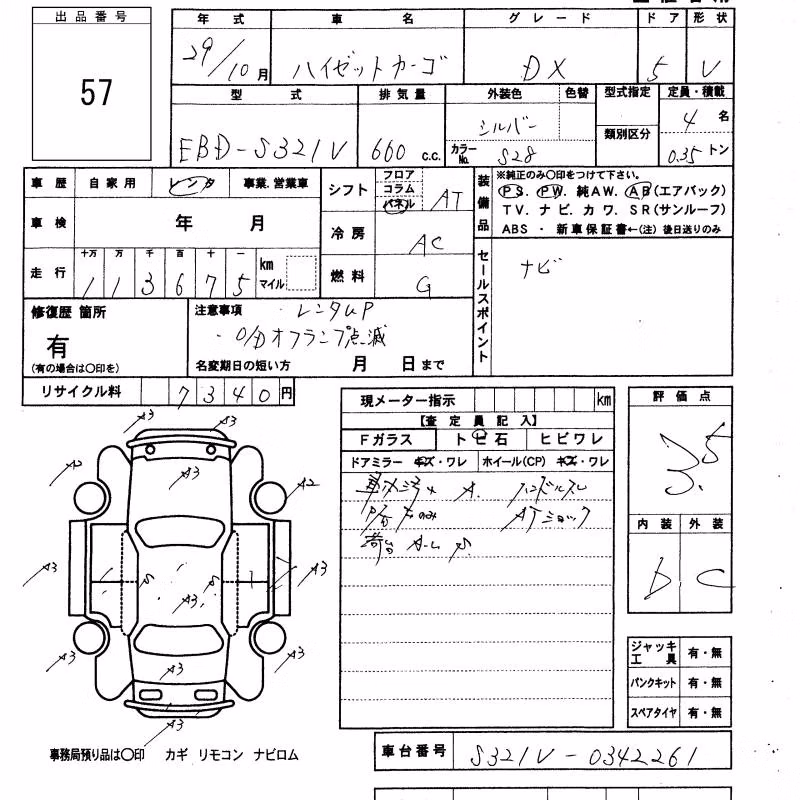 出品番号
57
年式 車名 グレード ドア 形状
29/10月 ハイゼットカーゴ DX 5 V
型式 排気量 外装色 色替 型式指定 定員・積載
EBD-S321V 660 c.c. シルバー 類別区分 4 名
カラーNo. S28 0.35 トン
車歴 自家用 レンタ 事業.営業車
車検 年 月
走行 十万 万 千 百 十 一 km マイル
1 1 3 6 7 5
シフト フロア コラム パネル AT
冷房 AC
燃料 G
装備品
※純正のみ〇印をつけて下さい。
PS. PW. 純AW. AB(エアバック)
TV. ナビ. カワ. SR(サンルーフ)
ABS ・ 新車保証書←(注) 後日送りのみ
セールスポイント
ナビ
修復歴 箇所
有
(有の場合は〇印を)
注意事項 ・レンタUP
・O/Dオフランプ点滅
名変期日の短い方 月 日まで
リサイクル料 7 3 4 0 円
現メーター指示 km
【査定員記入】
Fガラス トビ石 ヒビワレ
ドアミラー キズ・ワレ ホイール(CP) キズ・ワレ
A. ハンドルスレ
ATショック
荷台
評価点
3.5
内装 外装
D C
ジャッキ工具 有・無
パンクキット 有・無
スペアタイヤ 有・無
A3 A3
A3
A2 A2
A3 S A3 S A3
A3 A3 A3
A3
事務局預り品は〇印 カギ リモコン ナビロム
車台番号 S321V-0342261